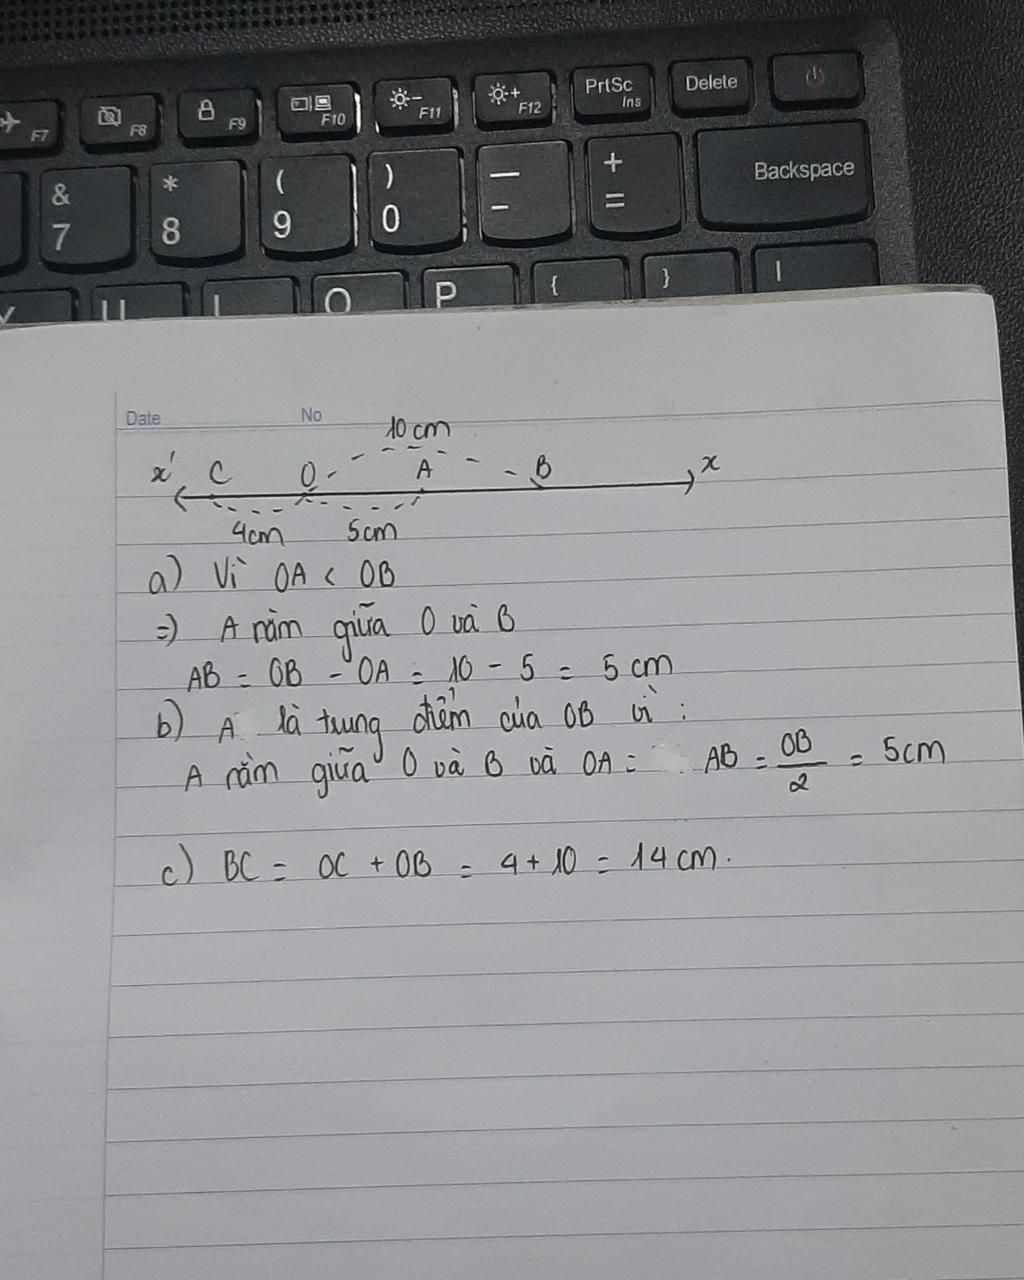 F7 F8 F9 F10 F11 F12 PrtSc Ins Delete
& 7 * 8 ( 9 ) 0 — - + = Backspace
U I O P { } |
Date No
10 cm
x' C O A B x
4cm 5cm
a) Vì OA < OB
=) A nằm giữa O và B
AB = OB - OA = 10 - 5 = 5 cm
b) A là trung điểm của OB vì :
A nằm giữa O và B và OA = AB = OB/2 = 5cm
c) BC = OC + OB = 4 + 10 = 14 cm.